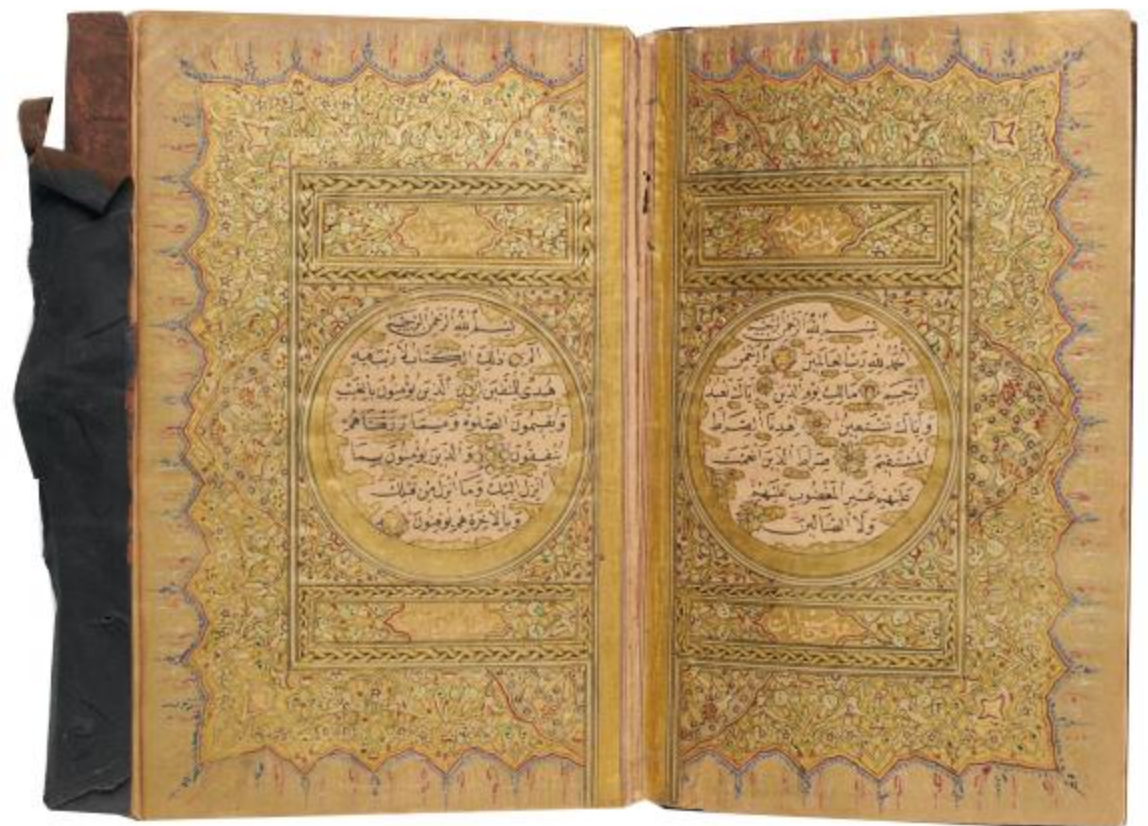 بسم الله الرحمن الرحيم
الحمد لله رب العالمين الرحمن
الرحيم مالك يوم الدين اياك نعبد
واياك نستعين اهدنا الصراط
المستقيم صراط الذين انعمت
عليهم غير المغضوب عليهم
ولا الضالين
بسم الله الرحمن الرحيم
الم ذلك الكتاب لا ريب فيه
هدى للمتقين الذين يؤمنون بالغيب
ويقيمون الصلوة ومما رزقناهم
ينفقون والذين يؤمنون بما
انزل اليك وما انزل من قبلك
وبالاخرة هم يوقنون